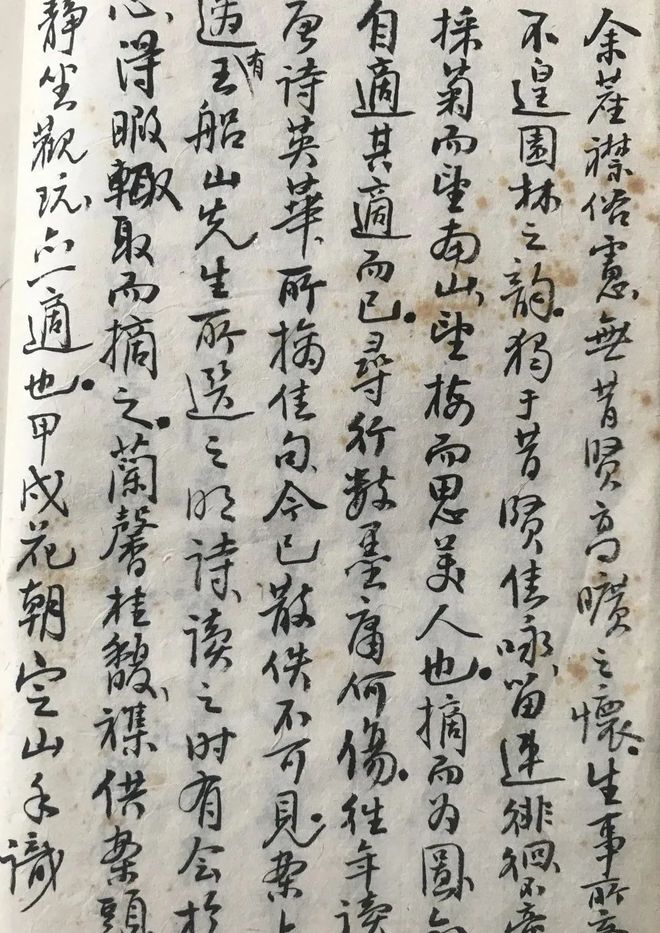 余塵襟俗慮、無昔賢高曠之懷。生事所
不遑園林之韵。獨于昔賢佳咏、留連徘徊、不啻
採菊而望南山、望梅而思美人也。摘而为圖、
自適其適而已。尋行數墨庸何傷。往年读
唐诗英華、所摘佳句、今已散佚不可見。案上
適有王船山先生所選之明诗、读之时有会於
心、得暇輒取而摘之。蘭馨桂馥、襍供案頭
静坐觀玩、亦一適也。甲戌花朝定山手識